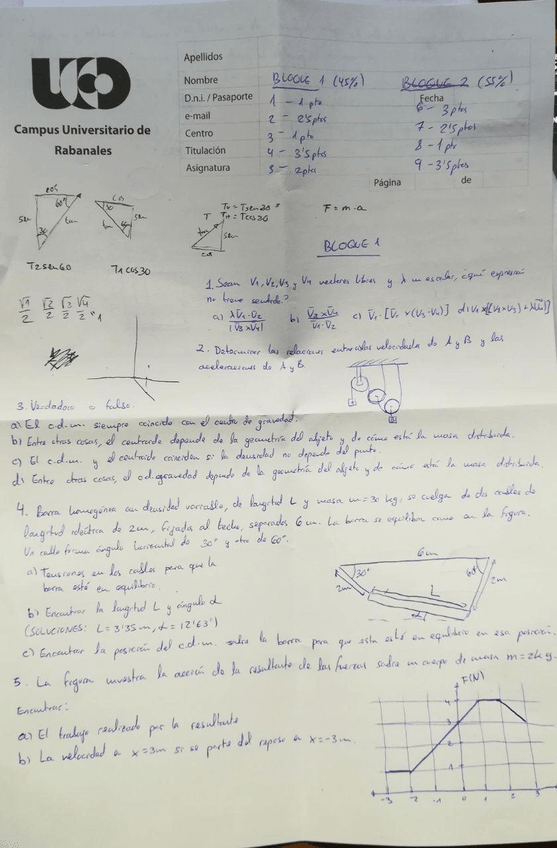 UCO
Campus Universitario de
Rabanales
Apellidos
Nombre BLOQUE 1 (45%) BLOQUE 2 (55%)
D.n.i. / Pasaporte 1 - 1 pto Fecha
e-mail 2 - 2'5 ptos 6 - 3 ptos
Centro 3 - 1 pto 7 - 2'5 ptos
Titulación 4 - 3'5 ptos 8 - 1 pto
Asignatura 5 - 2 ptos 9 - 3'5 ptos
Página de
cos 60° sen 30 cos
T2 sen 60 T1 cos 30
T F = m·a
BLOQUE 1
1. Sean V1, V2, V3 y V4 vectores libres y λ un escalar, ¿qué expresión
no tiene sentido?
2. Determinar las relaciones entre las velocidades de A y B y las
aceleraciones de A y B.
3. Verdadero o falso.
a) El c.d.m. siempre coincide con el centro de gravedad.
b) Entre otras cosas, el centroide depende de la geometría del objeto y de cómo está la masa distribuida.
c) El c.d.m. y el centroide coinciden si la densidad no depende del punto.
d) Entre otras cosas, el c.d.gravedad depende de la geometría del objeto y de cómo está la masa distribuida.
4. Barra homogénea con densidad variable, de longitud L y masa m=30 kg, se cuelga de dos cables de
longitud idéntica de 2m, fijados al techo, separados 6m. La barra se equilibra como en la figura.
Un cable forma ángulo horizontal de 30° y otro de 60°.
a) Tensiones en los cables para que la
barra esté en equilibrio.
b) Encontrar la longitud L y ángulo α
(SOLUCIONES: L=3'35m, α=12'63°)
c) Encontrar la posición del c.d.m. sobre la barra para que esta esté en equilibrio en esa posición.
6m
30° 60°
2m L 2m
α
5. La figura muestra la acción de la resultante de las fuerzas sobre un cuerpo de masa m=2kg.
Encontrar:
a) El trabajo realizado por la resultante
b) La velocidad en x=3m si se parte del reposo en x=-3m.
F(N)
4
3
2
1
-3 -2 -1 0 1 2 3